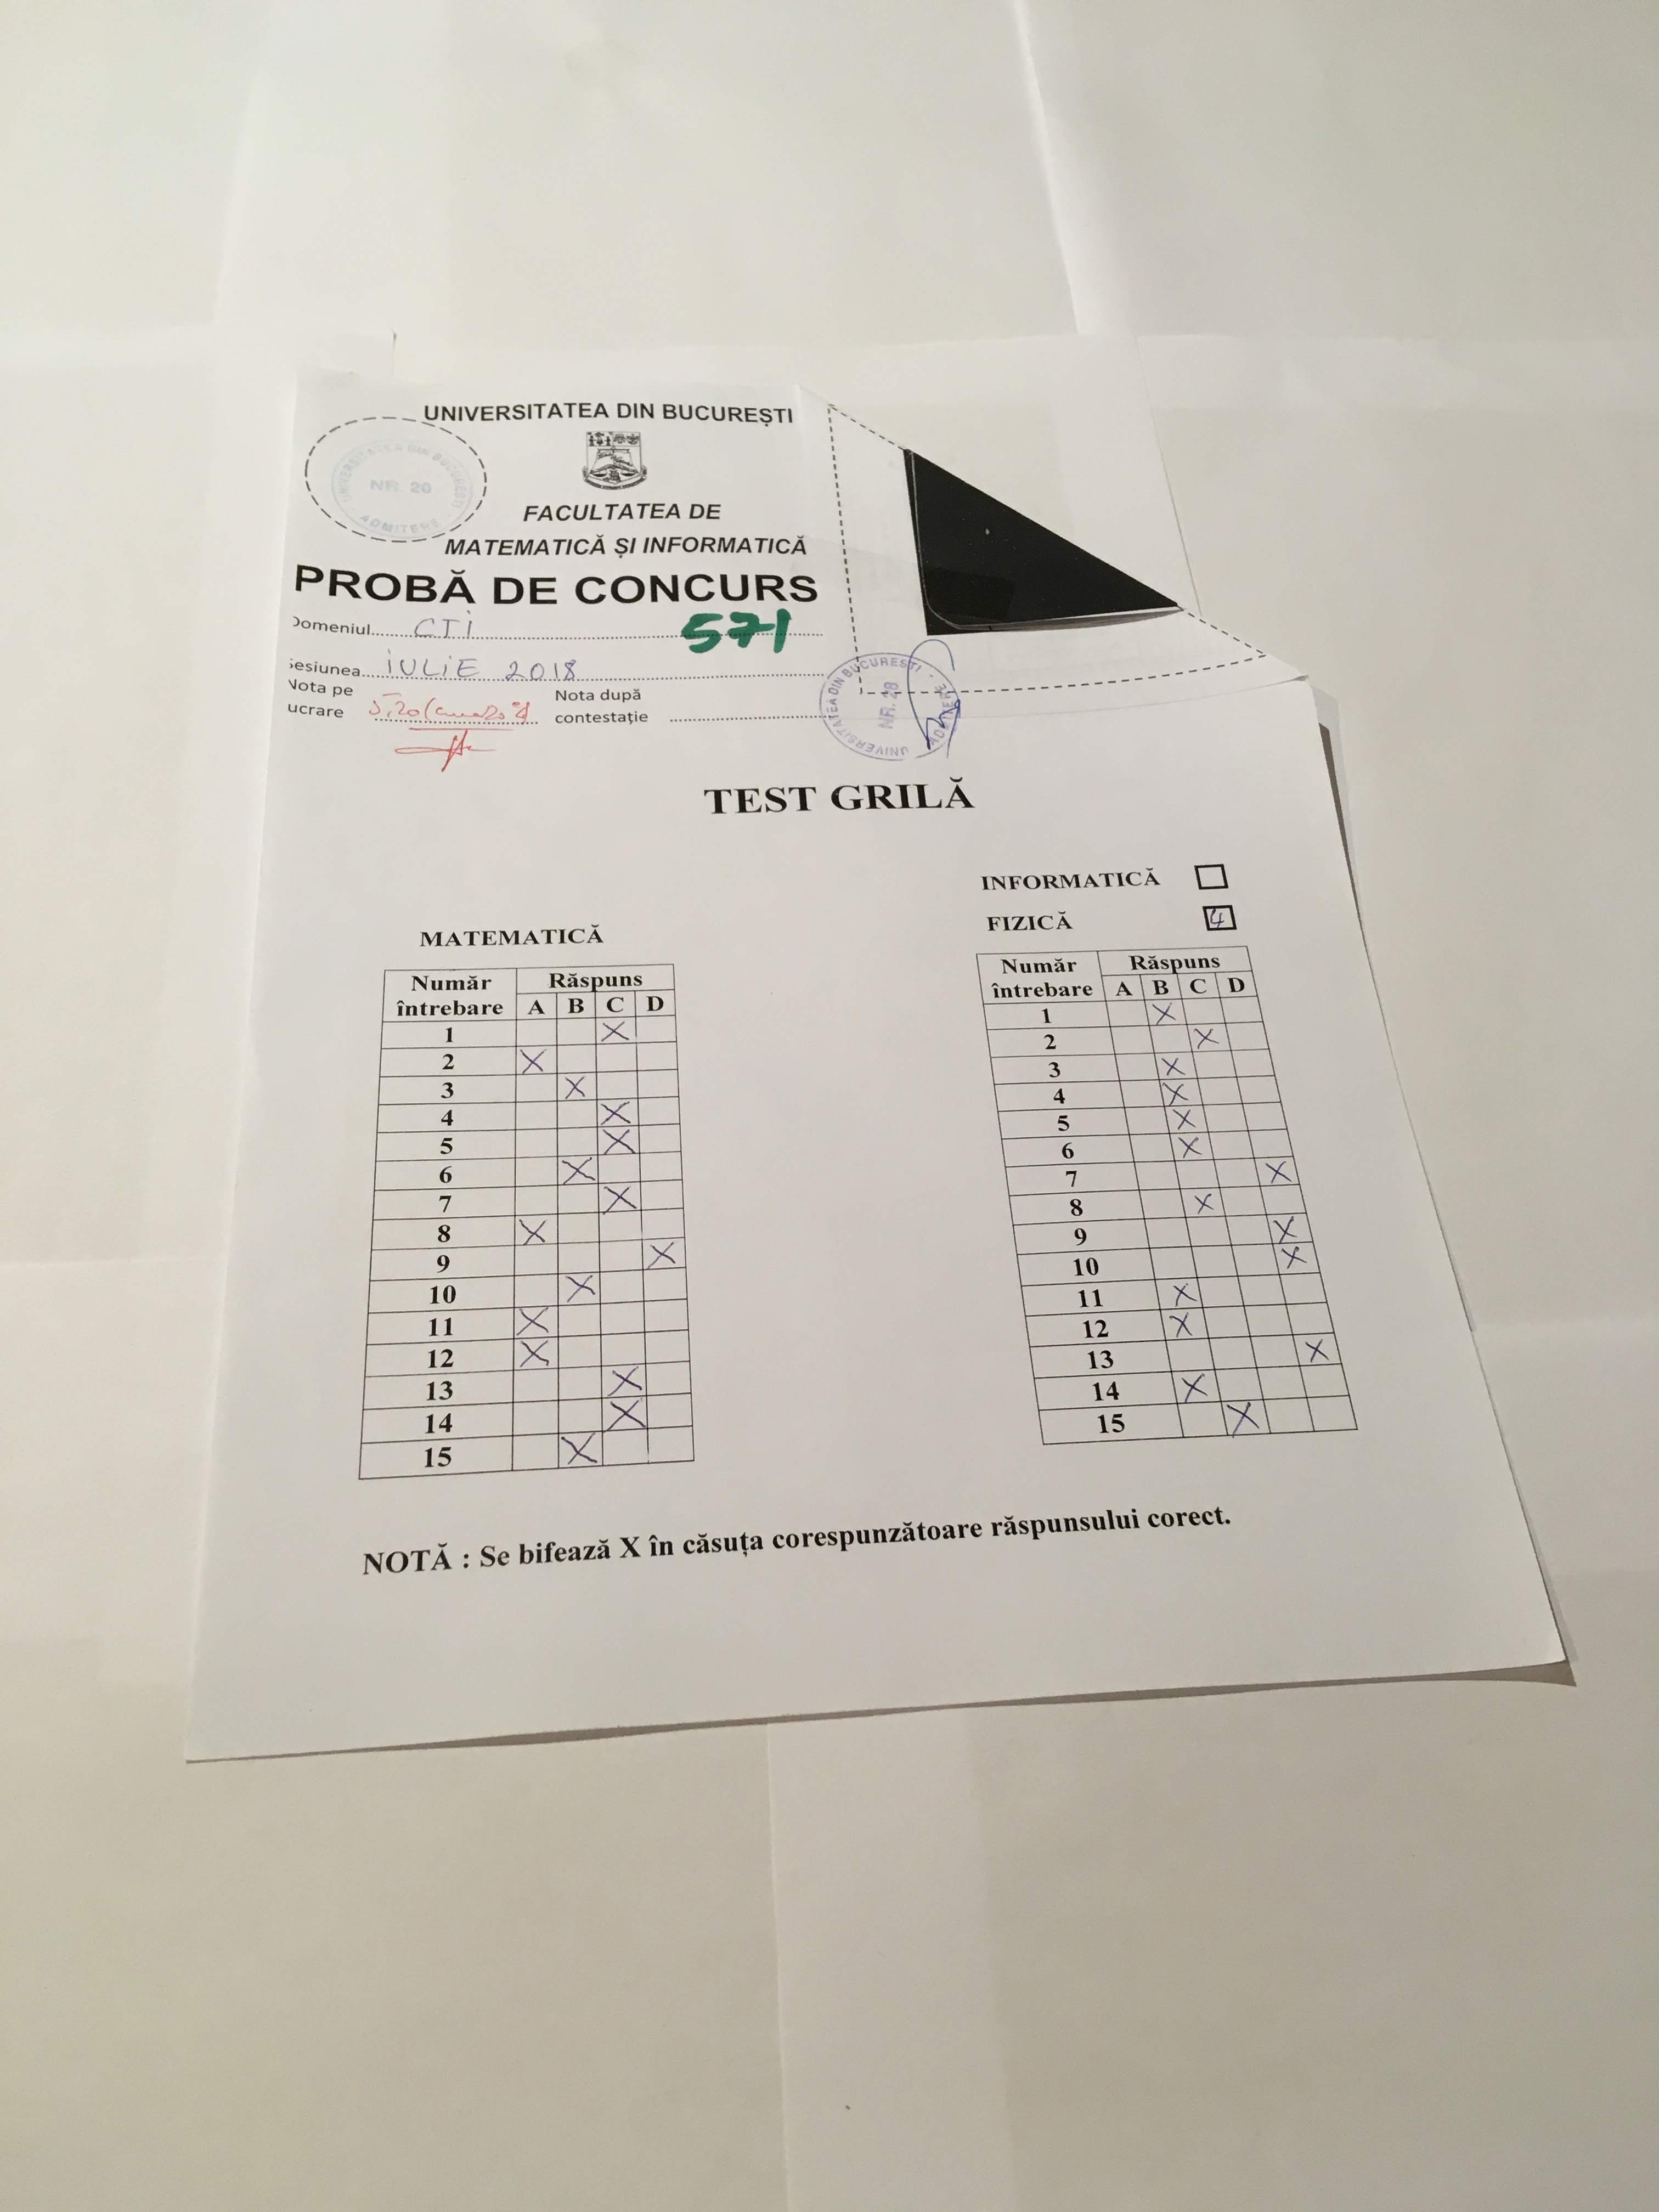 UNIVERSITATEA DIN BUCUREȘTI
UNIVERSITATEA DIN BUCUREȘTI
NR. 20
ADMITERE
FACULTATEA DE
MATEMATICĂ ȘI INFORMATICĂ
PROBĂ DE CONCURS
Domeniul CTI 571
Sesiunea IULIE 2018
Nota pe lucrare 5,20
Nota după contestație
UNIVERSITATEA DIN BUCURESTI
NR. 28
ADMITERE
TEST GRILĂ
MATEMATICĂ
Număr întrebare Răspuns
A B C D
1 X
2 X
3 X
4 X
5 X
6 X
7 X
8 X
9 X
10 X
11 X
12 X
13 X
14 X
15 X
INFORMATICĂ
FIZICĂ 4
Număr întrebare Răspuns
A B C D
1 X
2 X
3 X
4 X
5 X
6 X
7 X
8 X
9 X
10 X
11 X
12 X
13 X
14 X
15 X
NOTĂ : Se bifează X în căsuța corespunzătoare răspunsului corect.